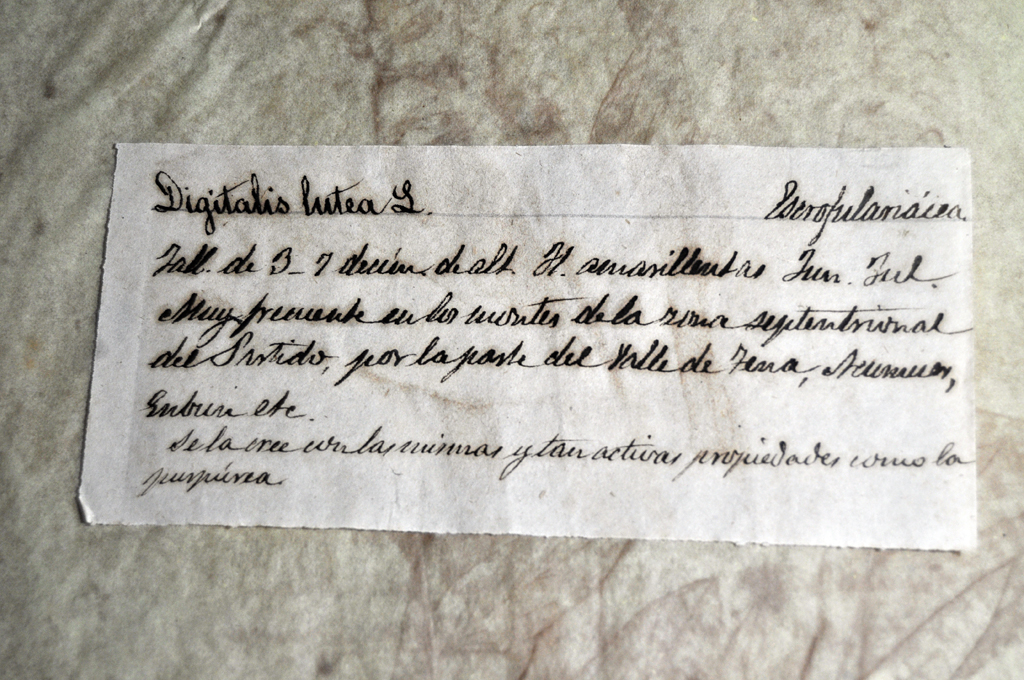 Digitalis lutea L. Escrofulariácea
Tall. de 3-7 decím. de alt. Fl. amarillentas Jun. Jul.
Muy frecuente en los montes de la zona septentrional
del Partido, por la parte del Valle de Tena, Acumuer,
Embun etc.
Se la cree con las mismas y tan activas propiedades como la
purpúrea